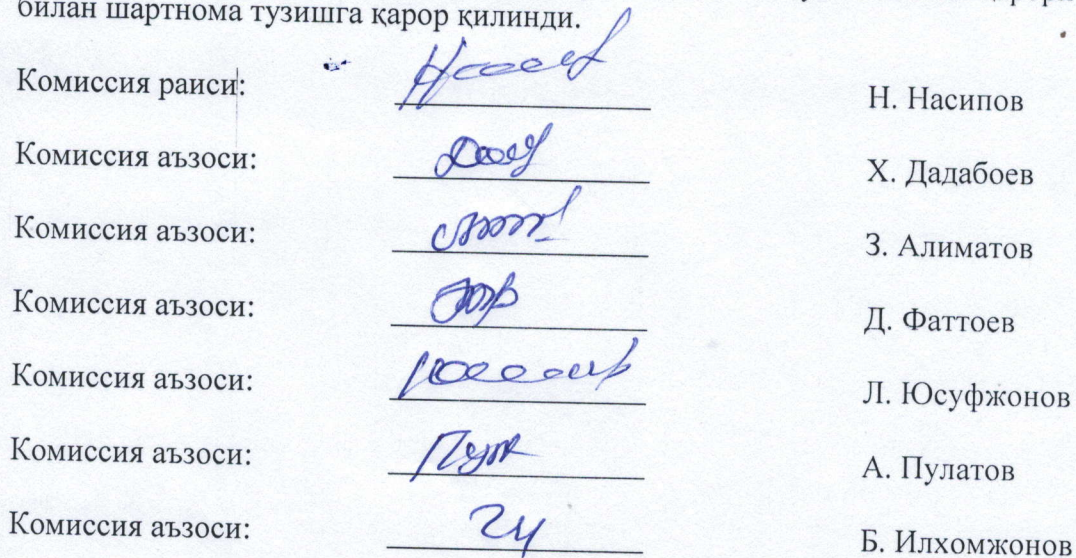 билан шартнома тузишга қарор қилинди.
Комиссия раиси: Н. Насипов
Комиссия аъзоси: Х. Дадабоев
Комиссия аъзоси: З. Алиматов
Комиссия аъзоси: Д. Фаттоев
Комиссия аъзоси: Л. Юсуфжонов
Комиссия аъзоси: А. Пулатов
Комиссия аъзоси: Б. Илхомжонов